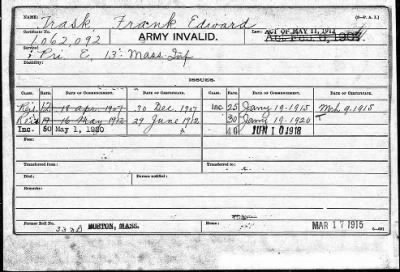 (3-P. A. I.)
Name: Trask Frank Edward
Certificate No. 1,062,092 ARMY INVALID. Law: ACT OF MAY 11, 1912
Service: Pri E, 13" Mass Inf
Disability:
ISSUES.
CLASS. RATE. DATE OF COMMENCEMENT. DATE OF CERTIFICATE. CLASS. RATE. DATE OF COMMENCEMENT. DATE OF CERTIFICATE.
12 18 Apr 1907 30 Dec 1907 Inc 25 Jany 19-1915 Mch 9. 1915
16 May 1912 29 June 1912 30 Jany 19-1920
Inc. 50 May 1, 1920 40 JUN 10 1918
Transferred from:
Transferred to:
Died: Bureau notified:
Remarks:
Former Roll No. BOSTON, MASS. Home: MAR 17 1915